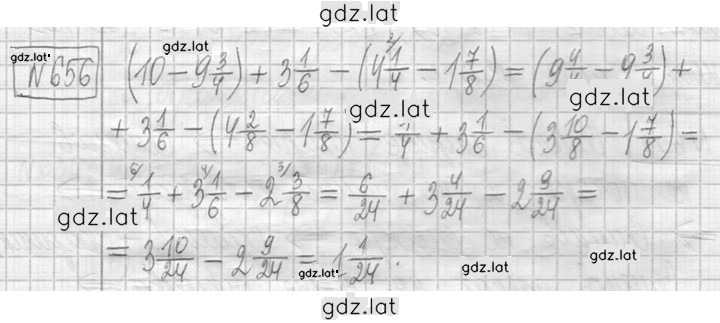 gdz.lat
gdz.lat
gdz.lat
N656 (10 - 9 3/4) + 3 1/6 - (4 1/4 - 1 7/8) = (9 4/4 - 9 3/4) +
gdz.lat
gdz.lat
+ 3 1/6 - (4 2/8 - 1 7/8) = 1/4 + 3 1/6 - (3 10/8 - 1 7/8) =
= 1/4 + 3 1/6 - 2 3/8 = 6/24 + 3 4/24 - 2 9/24 =
gdz.lat
= 3 10/24 - 2 9/24 = 1 1/24 .
gdz.lat
gdz.lat
gdz.lat
gdz.lat